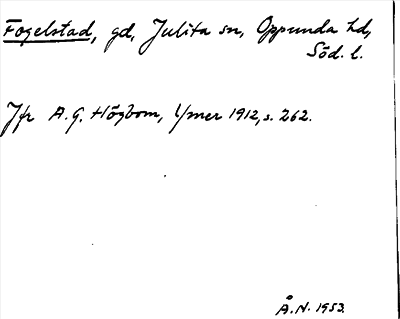 Fogelstad, gd, Julita sn, Oppunda hd,
Söd. l.
Jfr A.G. Högbom, Ymer 1912, s. 262.
Å.N. 1953.